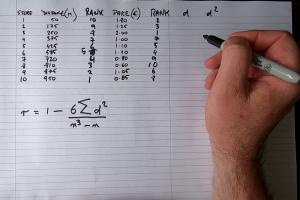 STORE DISTANCE(m) RANK PRICE(€) RANK d d²
1 50 10 1.80 2
2 175 9 1.25 3
3 270 8 2.00 1
4 375 7 1.00
5 425 6 1.10
6 585 5 1.20
7 710 4 0.80 9
8 790 3 0.60 10
9 875 2 1.05 6
10 980 1 0.85 8
r = 1 - 6∑d²
n³ - n